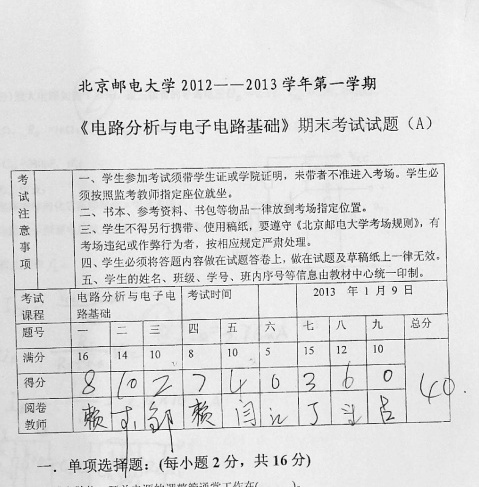 北京邮电大学 2012——2013 学年第一学期
《电路分析与电子电路基础》期末考试试题（A）
考试注意事项
一、学生参加考试须带学生证或学院证明，未带者不准进入考场。学生必
须按照监考教师指定座位就坐。
二、书本、参考资料、书包等物品一律放到考场指定位置。
三、学生不得另行携带、使用稿纸，要遵守《北京邮电大学考场规则》，有
考场违纪或作弊行为者，按相应规定严肃处理。
四、学生必须将答题内容做在试题答卷上，做在试题及草稿纸上一律无效。
五、学生的姓名、班级、学号、班内序号等信息由教材中心统一印制。
考试课程 电路分析与电子电路基础 考试时间 2013 年 1 月 9 日
题号 一 二 三 四 五 六 七 八 九 总分
满分 16 14 10 8 10 5 15 12 10
得分 8 10 2 7 4 0 3 6 0 40
阅卷教师 赖 邹 赖 闫 丁 吕
一．单项选择题：(每小题 2 分，共 16 分)